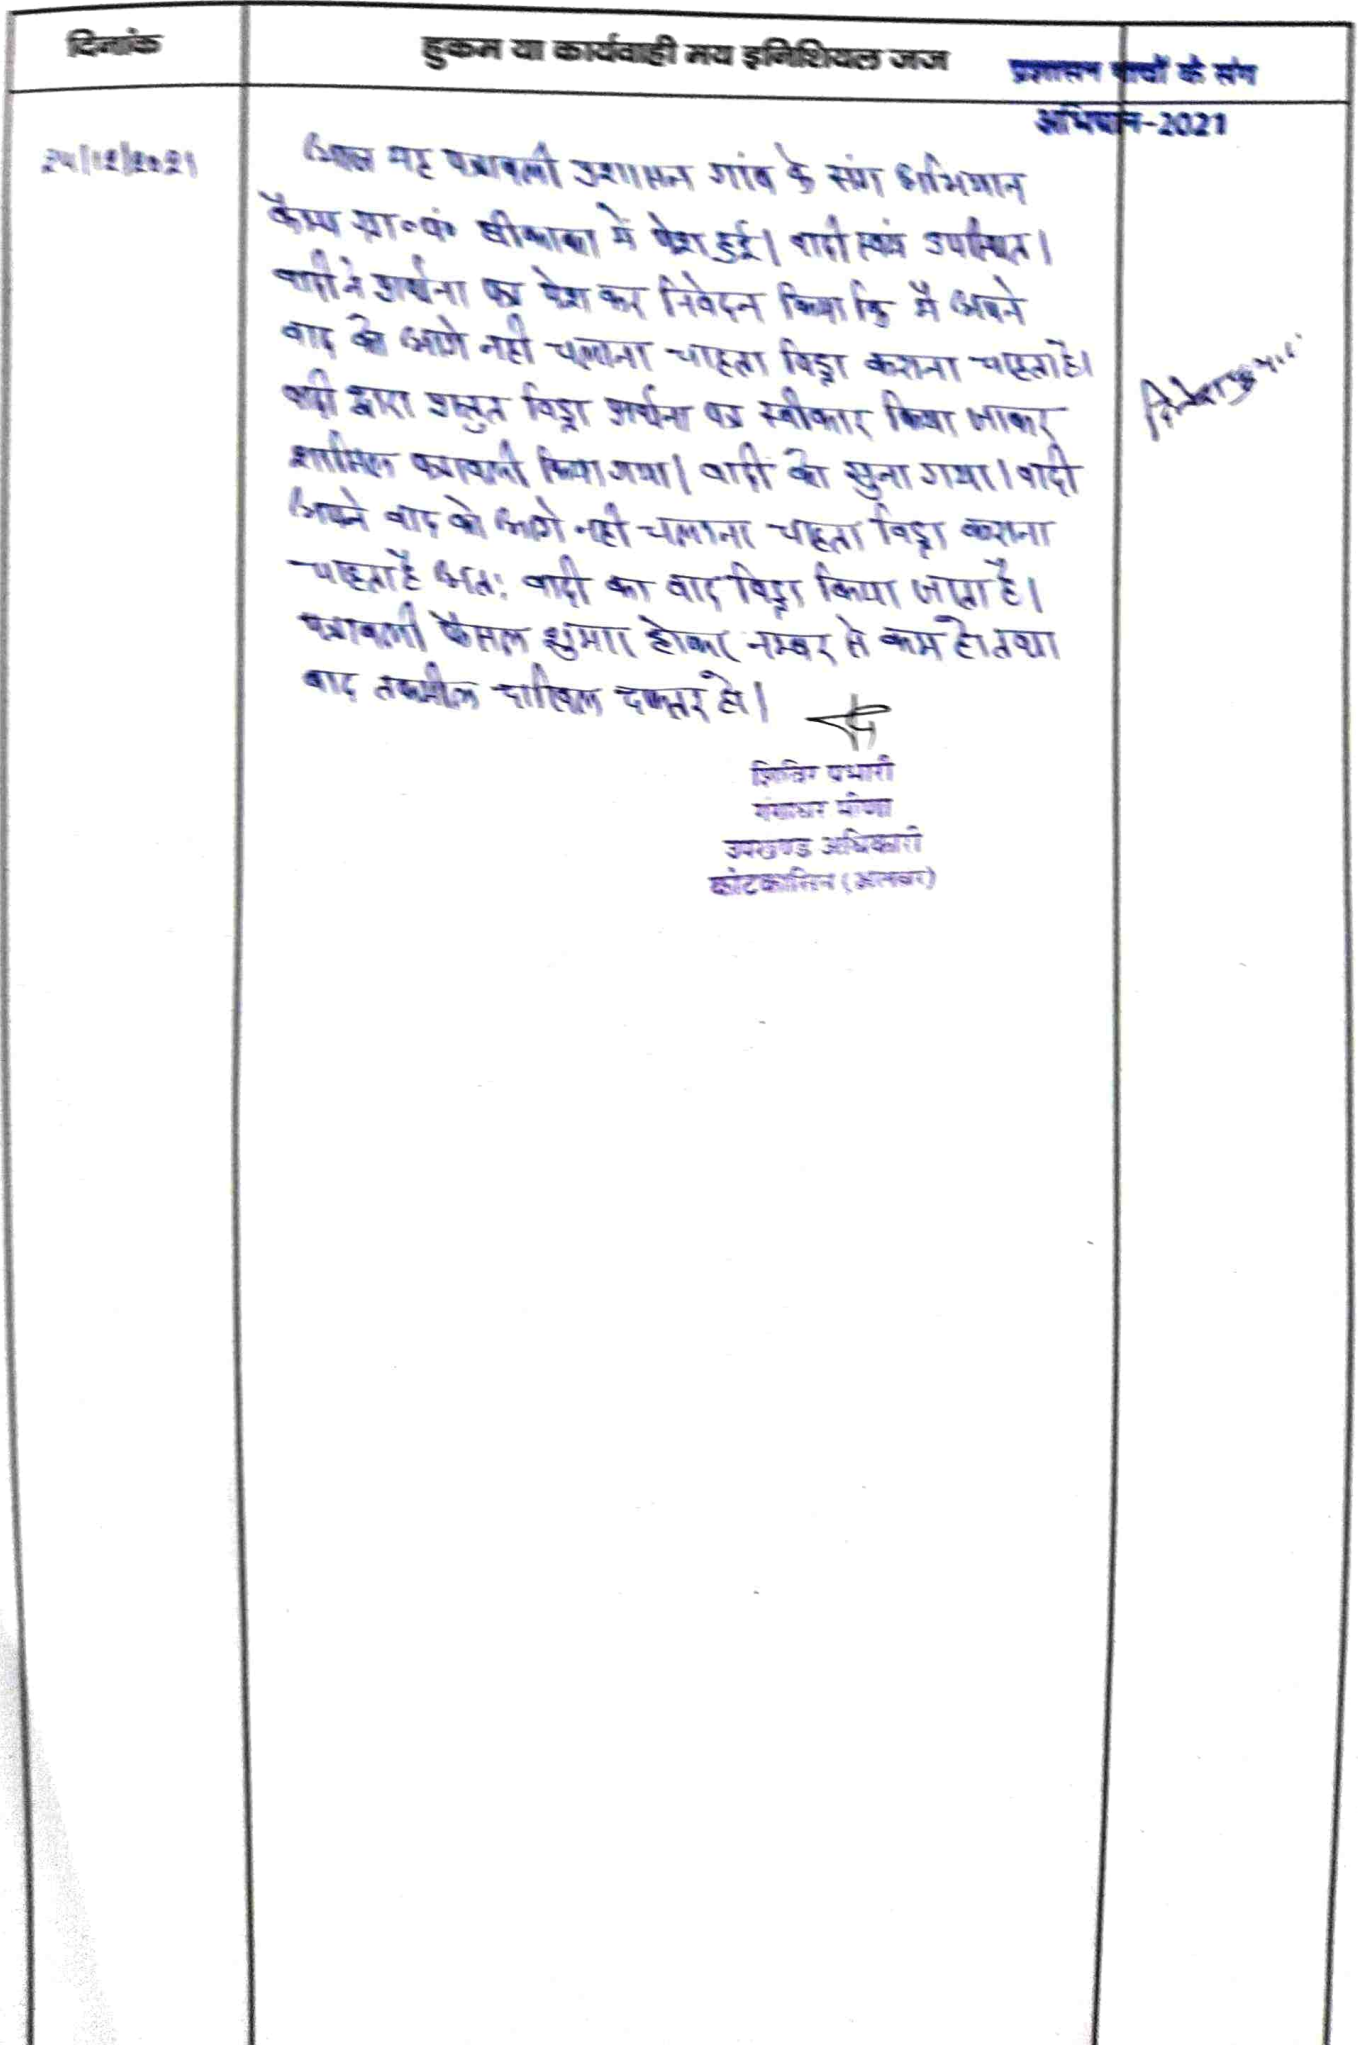 दिनांक
हुकम या कार्यवाही मय इनिशियल जज
प्रशासन गावों के संग
अभियान-2021
24/12/2021
आज यह पत्रावली प्रशासन गांव के संग अभियान
कैम्प ग्रा०पं० में पेश हुई। वादी स्वयं उपस्थित।
वादी ने प्रार्थना पत्र पेश कर निवेदन किया कि मै अपने
वाद को आगे नही चलाना चाहता विड्रा कराना चाहता है।
वादी द्वारा प्रस्तुत विड्रा प्रार्थना पत्र स्वीकार किया जाकर
शामिल पत्रावली किया गया। वादी को सुना गया। वादी
अपने वाद को आगे नही चलाना चाहता विड्रा कराना
चाहता है अतः वादी का वाद विड्रा किया जाता है।
पत्रावली फैसल शुमार होकर नम्बर से कम हो तथा
बाद तकमील दाखिल दफ्तर हो।
शिविर प्रभारी
गंगाधर मीणा
उपखण्ड अधिकारी
कोटकासिम (अलवर)